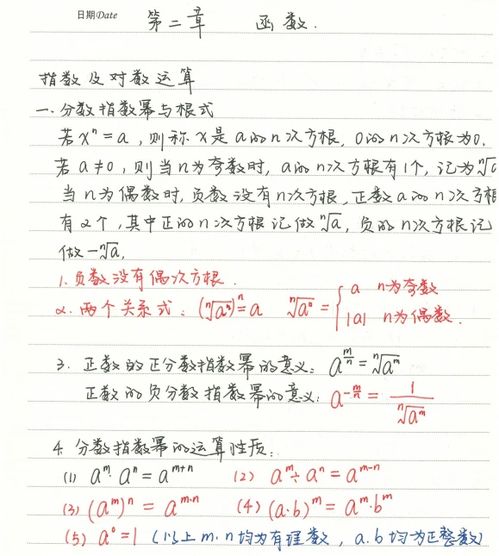 日期Date 第二章 函数.
指数及对数运算
一.分数指数幂与根式
若xⁿ=a,则称x是a的n次方根,0的n次方根为0.
若a≠0,则当n为奇数时,a的n次方根有1个,记为ⁿ√a
当n为偶数时,负数没有n次方根,正数a的n次方根
有2个,其中正的n次方根记做ⁿ√a,负的n次方根记
做-ⁿ√a.
1.负数没有偶次方根.
2.两个关系式:(ⁿ√aⁿ)ⁿ=a ⁿ√aⁿ={a n为奇数
|a| n为偶数.
3.正数的正分数指数幂的意义:a^(m/n)=ⁿ√a^m
正数的负分数指数幂的意义:a^(-m/n)=1/ⁿ√a^m
4.分数指数幂的运算性质:
(1) a^m·a^n=a^(m+n) (2) a^m÷a^n=a^(m-n)
(3) (a^m)^n=a^(m·n) (4) (a·b)^m=a^m·b^m
(5) a⁰=1 (以上m.n均为有理数,a.b均为正整数)